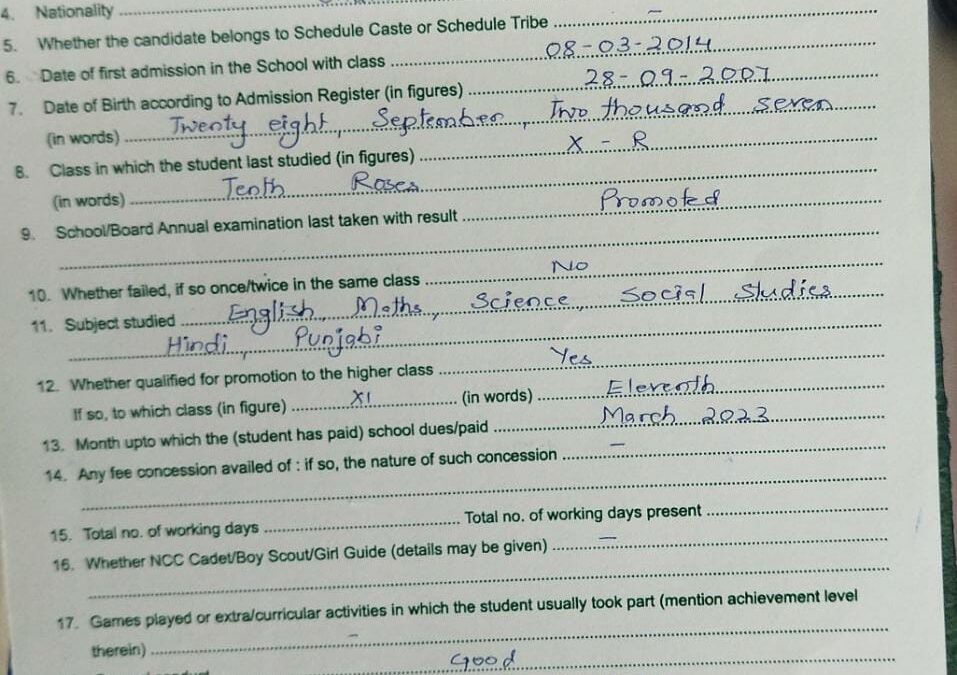 4. Nationality
5. Whether the candidate belongs to Schedule Caste or Schedule Tribe –
6. Date of first admission in the School with class 08-03-2014
7. Date of Birth according to Admission Register (in figures) 28-09-2007
(in words) Twenty eight, September, Two thousand seven
8. Class in which the student last studied (in figures) X - R
(in words) Tenth Roses
9. School/Board Annual examination last taken with result Promoted
10. Whether failed, if so once/twice in the same class No
11. Subject studied English, Maths, Science, Social Studies
Hindi, Punjabi
12. Whether qualified for promotion to the higher class Yes
If so, to which class (in figure) XI (in words) Eleventh
13. Month upto which the (student has paid) school dues/paid March 2023
14. Any fee concession availed of : if so, the nature of such concession –
15. Total no. of working days Total no. of working days present
16. Whether NCC Cadet/Boy Scout/Girl Guide (details may be given) –
17. Games played or extra/curricular activities in which the student usually took part (mention achievement level
therein) –
Good